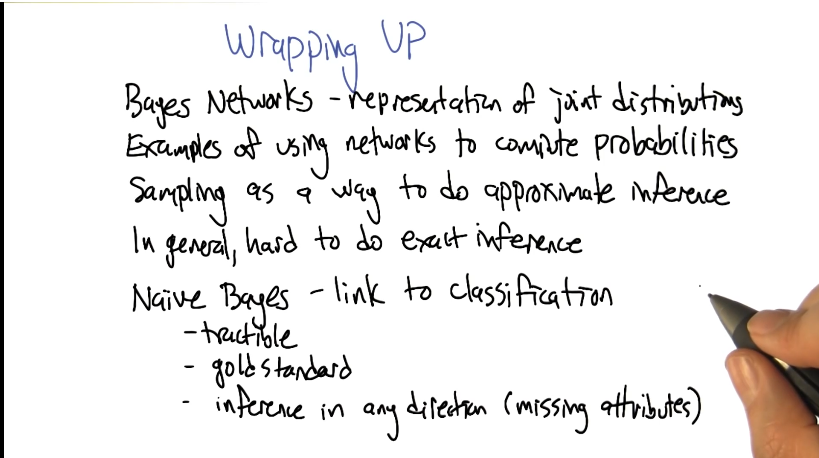 Wrapping Up
Bayes Networks - representation of joint distributions
Examples of using networks to compute probabilities
Sampling as a way to do approximate inference
In general, hard to do exact inference
Naive Bayes - link to classification
- tractible
- gold standard
- inference in any direction (missing attributes)